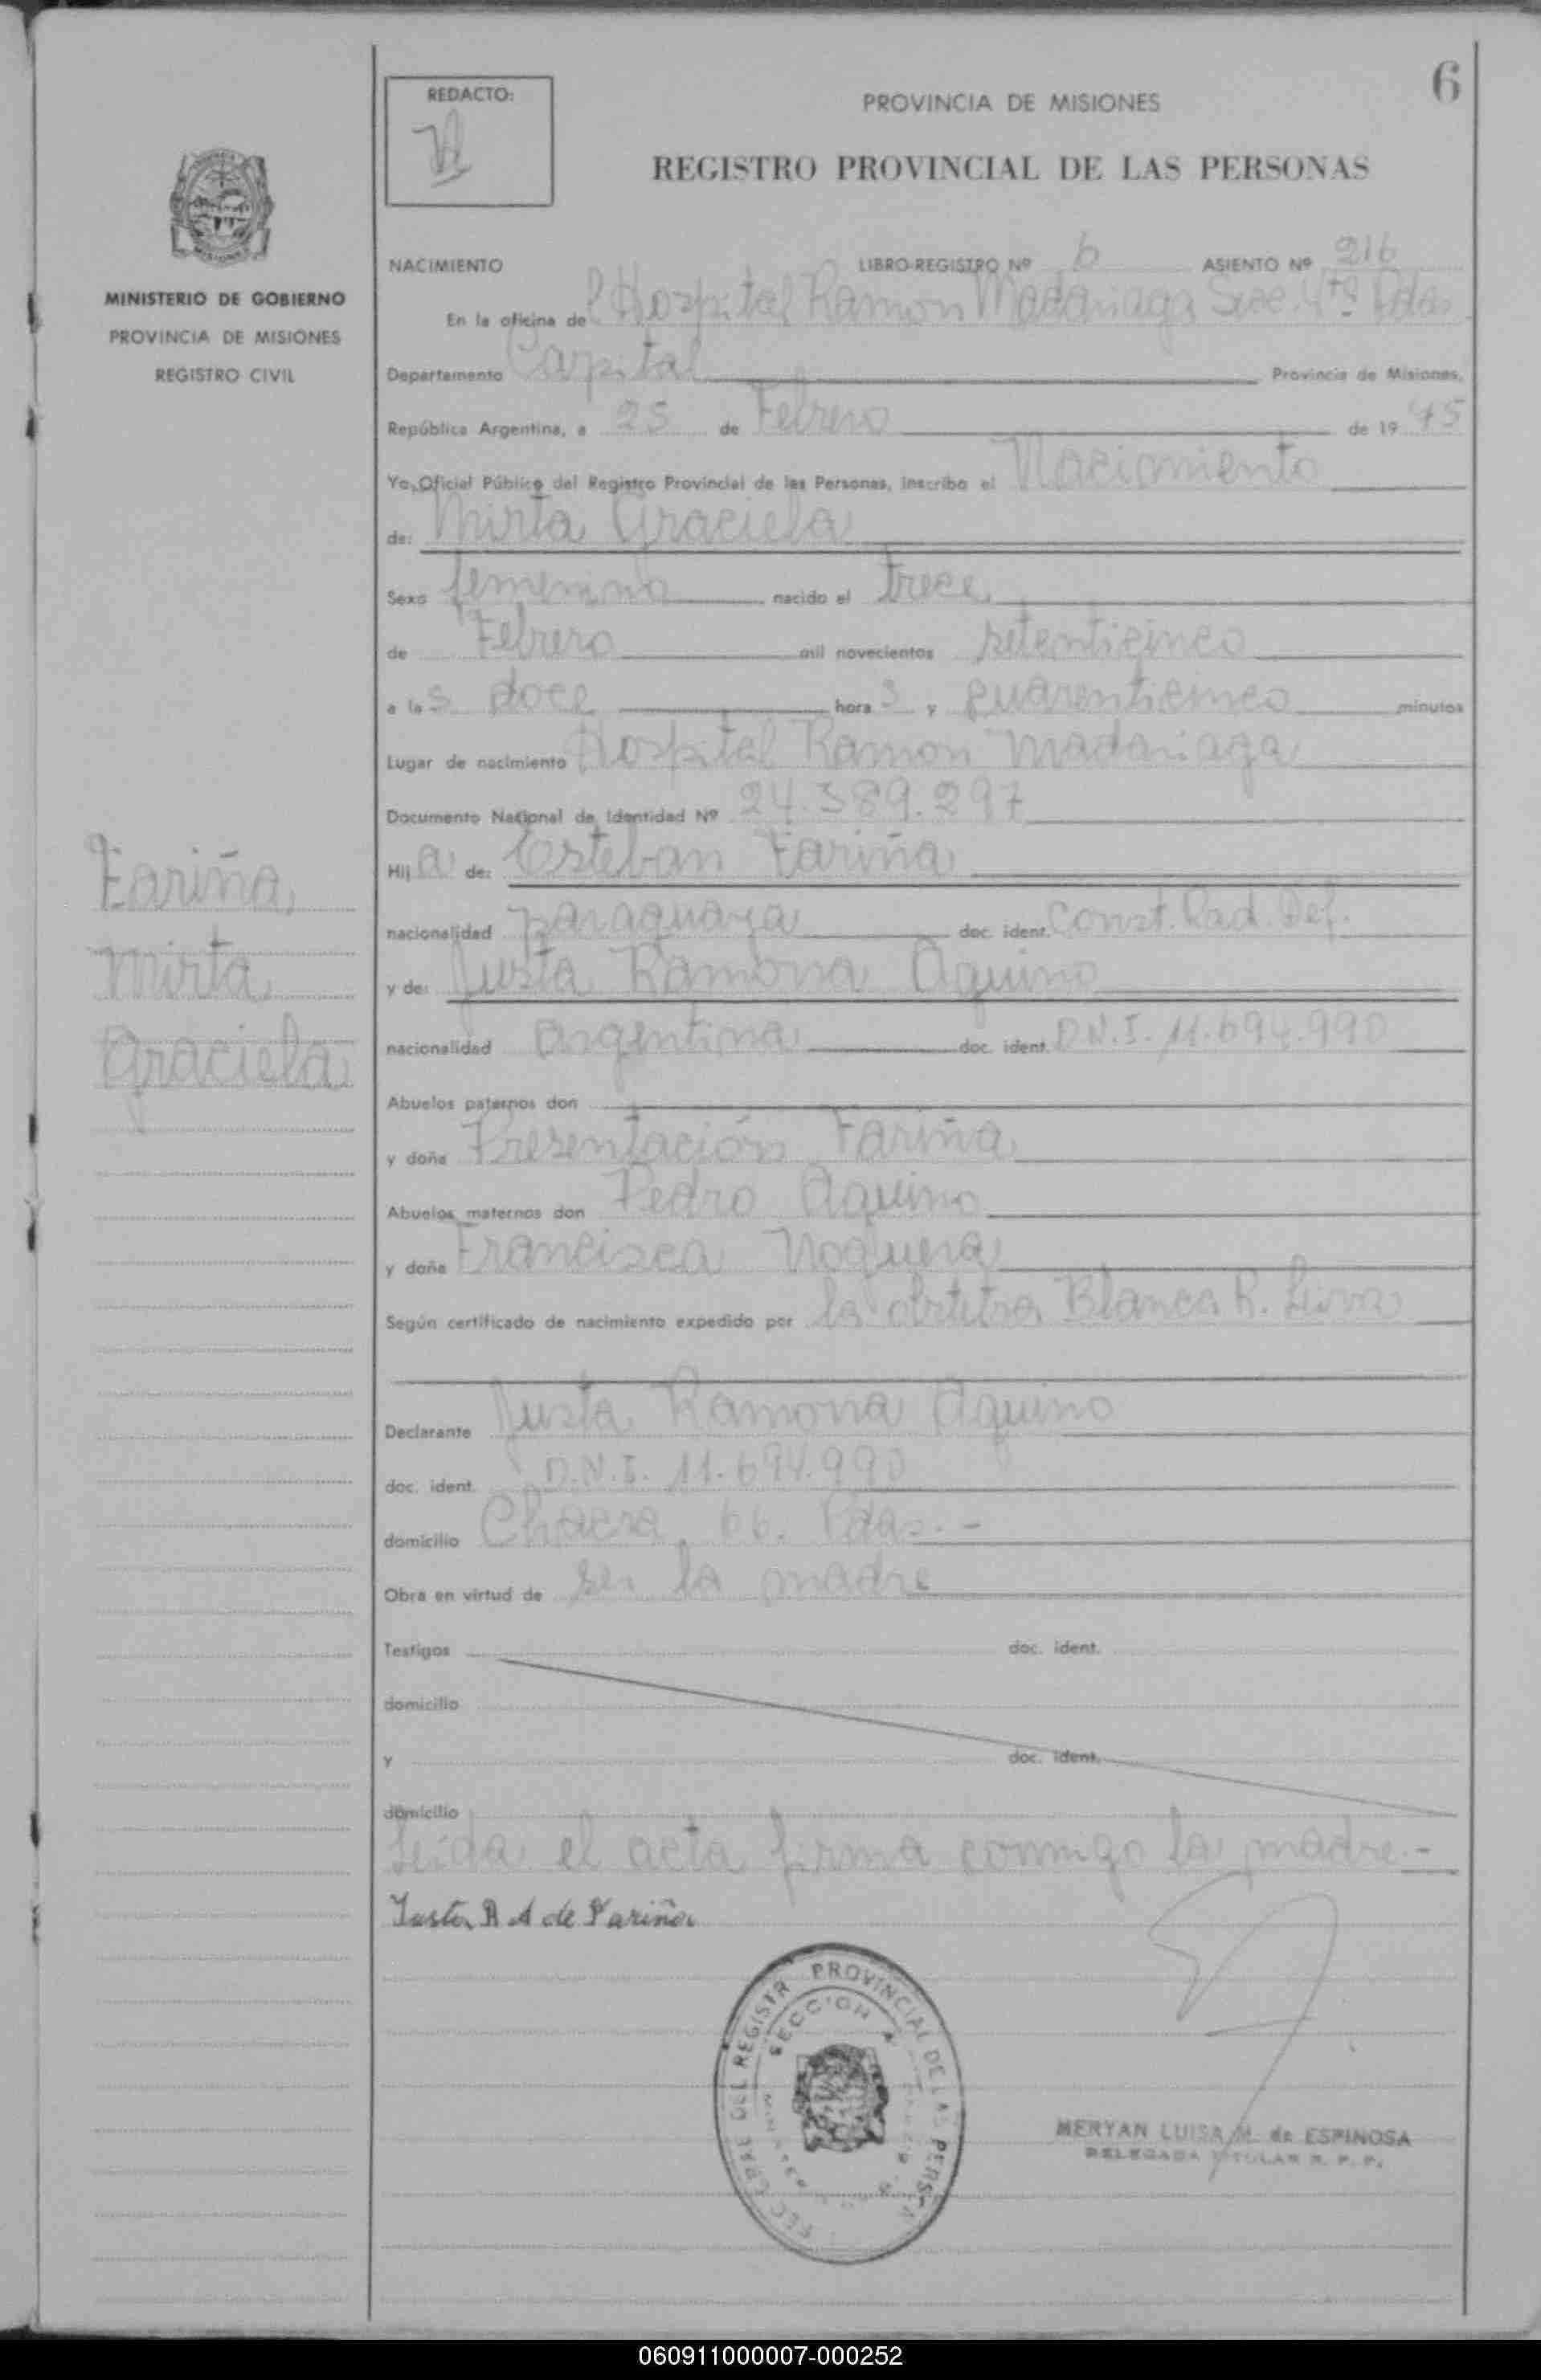 6
REDACTO:
PROVINCIA DE MISIONES
REGISTRO PROVINCIAL DE LAS PERSONAS
MINISTERIO DE GOBIERNO
PROVINCIA DE MISIONES
REGISTRO CIVIL
NACIMIENTO LIBRO-REGISTRO Nº 6 ASIENTO Nº 216
En la oficina del Hospital Ramon Madariaga Secc. 4ta Pdas
Departamento Capital Provincia de Misiones,
República Argentina, a 25 de Febrero de 19 75
Yo, Oficial Público del Registro Provincial de las Personas, inscribo el Nacimiento
de: Mirta Graciela
Sexo femenino nacido el trece
de Febrero mil novecientos setenticinco
a las doce horas y cuarenticinco minutos
Lugar de nacimiento Hospital Ramon Madariaga
Documento Nacional de Identidad Nº 24.389.297
Hija de: Esteban Fariña
nacionalidad paraguaya doc. ident. Const. Rad. Def.
y de: Justa Ramona Aquino
nacionalidad argentina doc. ident. D.N.I. 11.694.990
Abuelos paternos don
y doña Presentación Fariña
Abuelos maternos don Pedro Aquino
y doña Francisca Noguera
Según certificado de nacimiento expedido por la obstetra Blanca R. Leiva
Declarante Justa Ramona Aquino
doc. ident. D.N.I. 11.694.990
domicilio Chacra 66. Pdas.-
Obra en virtud de ser la madre
Testigos doc. ident.
domicilio
y doc. ident.
domicilio
Leida el acta firma conmigo la madre.-
Justa R A de Fariña
Fariña,
Mirta
Graciela
DEL REGISTR PROVINCIAL DE LAS PERS
SECCION 4
MERYAN LUISA M. de ESPINOSA
DELEGADA TITULAR R. P. P.
060911000007-000252